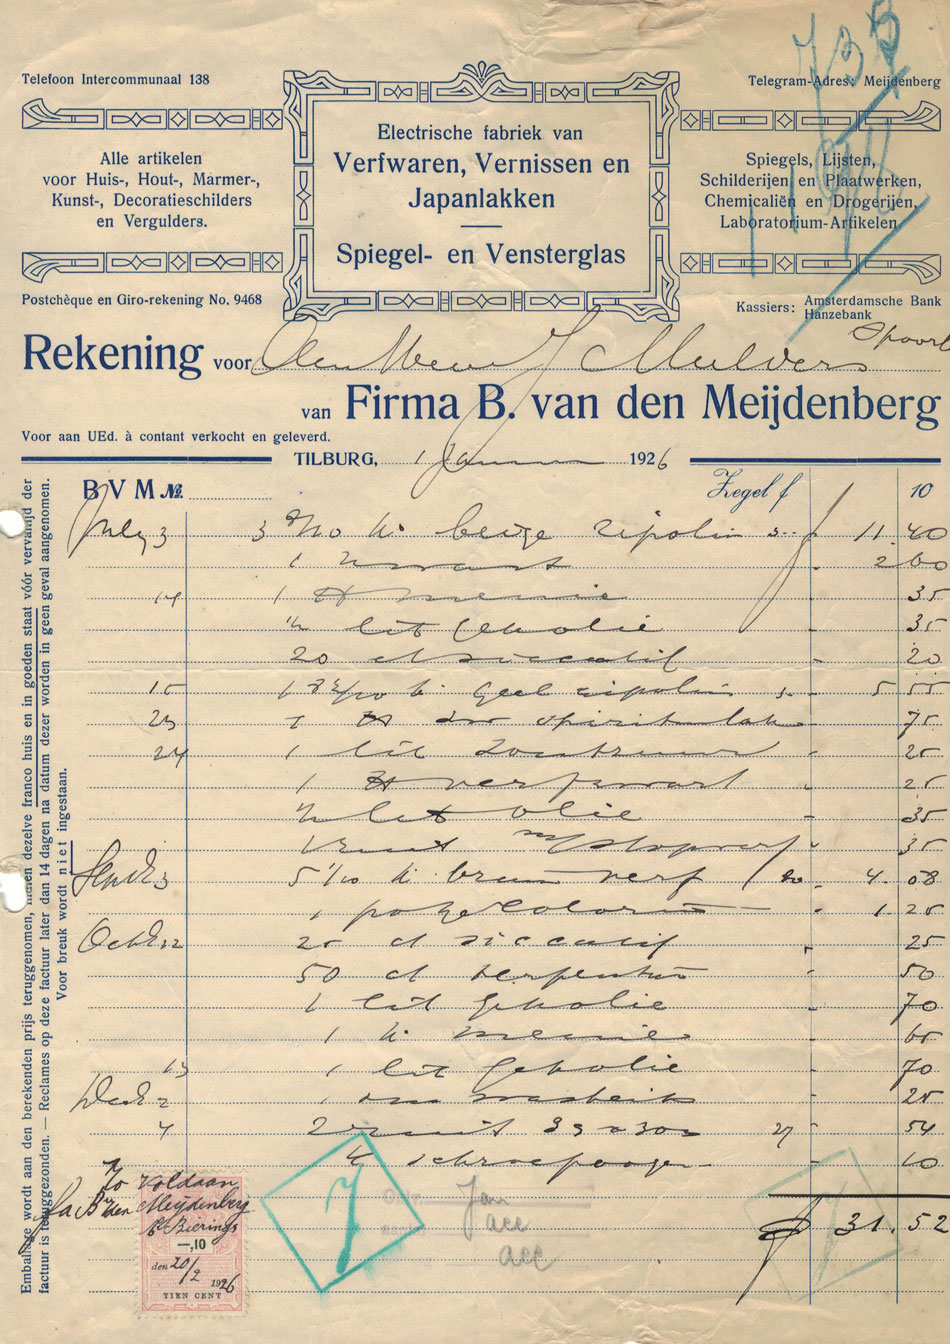 Telefoon Intercommunaal 138
Telegram-Adres: Meijdenberg
Alle artikelen
voor Huis-, Hout-, Marmer-,
Kunst-, Decoratieschilders
en Vergulders.
Electrische fabriek van
Verfwaren, Vernissen en
Japanlakken
Spiegel- en Vensterglas
Spiegels, Lijsten,
Schilderijen en Plaatwerken,
Chemicaliën en Drogerijen,
Laboratorium-Artikelen
Postchèque en Giro-rekening No. 9468
Kassiers: Amsterdamsche Bank
Hanzebank
Rekening voor
van Firma B. van den Meijdenberg
Voor aan UEd. à contant verkocht en geleverd.
TILBURG, 1 Januari 1926
B V M No.
Zegel f 10
July 3 3 beige ripolin 11.40
1 zwart 2 60
14 1 menie 35
½ lit Gek olie 35
20 cl siccatif 20
15 Geel ripolin 5 55
23 spirituslak 75
24 1 lit 25
1 verfzwart 25
½ lit olie 35
stopverf 35
3 5 1/10 k. bruin verf 4.08
1 1.25
Octb 12 25 cl siccatif 25
50 cl terpentijn 50
1 lit Gekolie 70
1 k. menie 65
13 1 lit Gekolie 70
2 1 25
4 2 ruit 39 x 30 27 54
4 schroefoogen 10
f 31.52
Voldaan
Meijdenberg
—,10
den 20/2 1926
TIEN CENT
7
Jan
acc
acc
Emballage wordt aan den berekenden prijs teruggenomen, indien dezelve franco huis en in goeden staat vóór vervaltijd der
factuur is teruggezonden. — Reclames op deze factuur later dan 14 dagen na datum dezer worden in geen geval aangenomen.
Voor breuk wordt niet ingestaan.